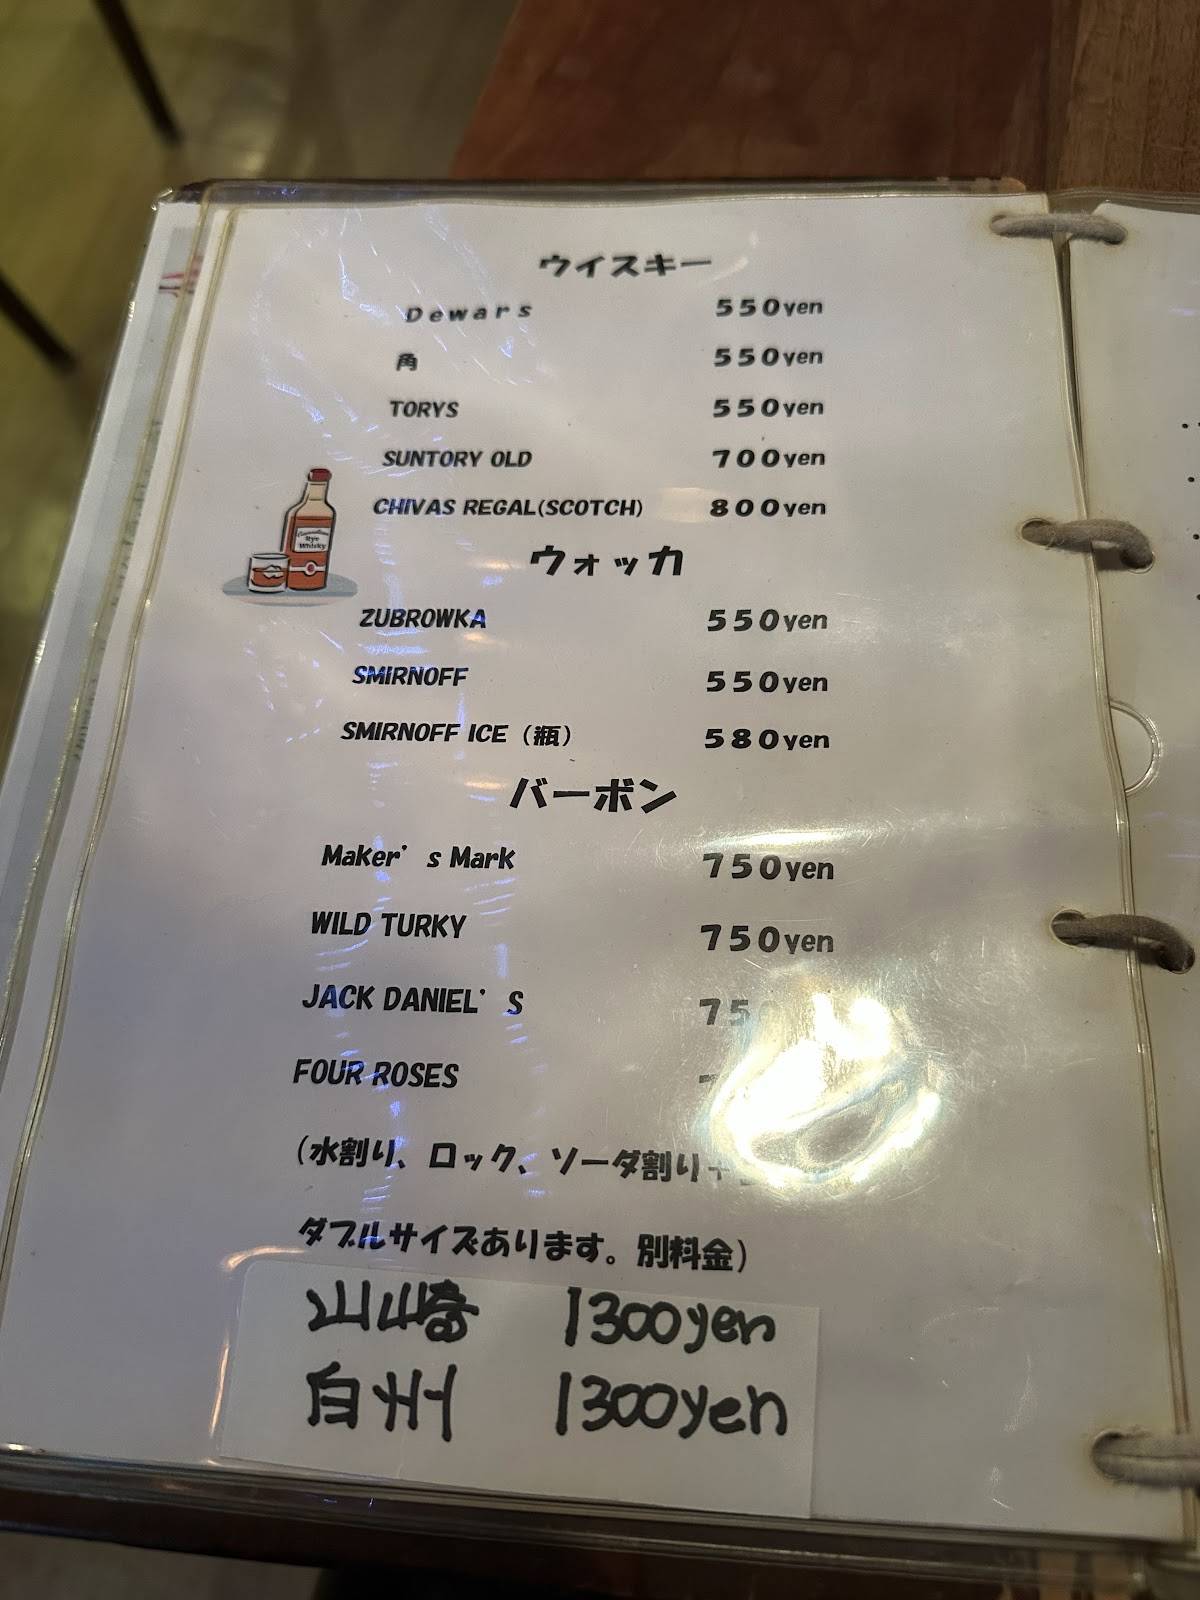 ウイスキー
Dewars 550yen
角 550yen
TORYS 550yen
SUNTORY OLD 700yen
CHIVAS REGAL(SCOTCH) 800yen
Rye
Whisky
ウォッカ
ZUBROWKA 550yen
SMIRNOFF 550yen
SMIRNOFF ICE（瓶） 580yen
バーボン
Maker’s Mark 750yen
WILD TURKY 750yen
JACK DANIEL’S 75
FOUR ROSES
（水割り、ロック、ソーダ割り＋
ダブルサイズあります。別料金）
山崎 1300yen
白州 1300yen